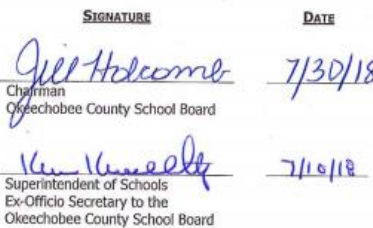 SIGNATURE DATE
Jill Holcomb 7/30/18
Chairman
Okeechobee County School Board
Ken Kenworthy 7/10/18
Superintendent of Schools
Ex-Officio Secretary to the
Okeechobee County School Board